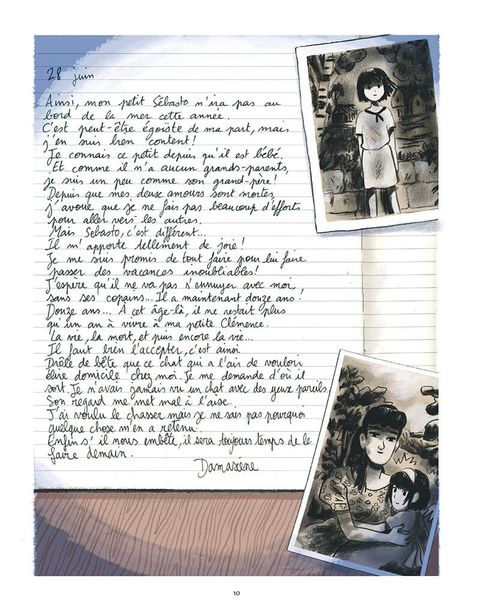 28 juin
Ainsi, mon petit Sébasto n'ira pas au
bord de la mer cette année.
C'est peut-être égoïste de ma part, mais
j'en suis bien content!
Je connais ce petit depuis qu'il est bébé.
Et comme il n'a aucun grands-parents,
je suis un peu comme son grand-père!
Depuis que mes deux amours sont mortes,
j'avoue que je ne fais pas beaucoup d'efforts
pour aller vers les autres.
Mais Sébasto, c'est différent...
Il m'apporte tellement de joie!
Je me suis promis de tout faire pour lui faire
passer des vacances inoubliables!
J'espère qu'il ne va pas s'ennuyer avec moi,
sans ses copains... Il a maintenant douze ans!
Douze ans... A cet âge-là, il ne restait plus
qu'un an à vivre à ma petite Clémence.
La vie, la mort, et puis encore la vie...
Il faut bien l'accepter, c'est ainsi.
Drôle de bête que ce chat qui a l'air de vouloir
élire domicile chez moi. Je me demande d'où il
sort. Je n'avais jamais vu un chat avec des yeux pareils.
Son regard me met mal à l'aise.
J'ai voulu le chasser mais je ne sais pas pourquoi
quelque chose m'en a retenu.
Enfin s'il nous embête, il sera toujours temps de le
faire demain.
Damasène
10